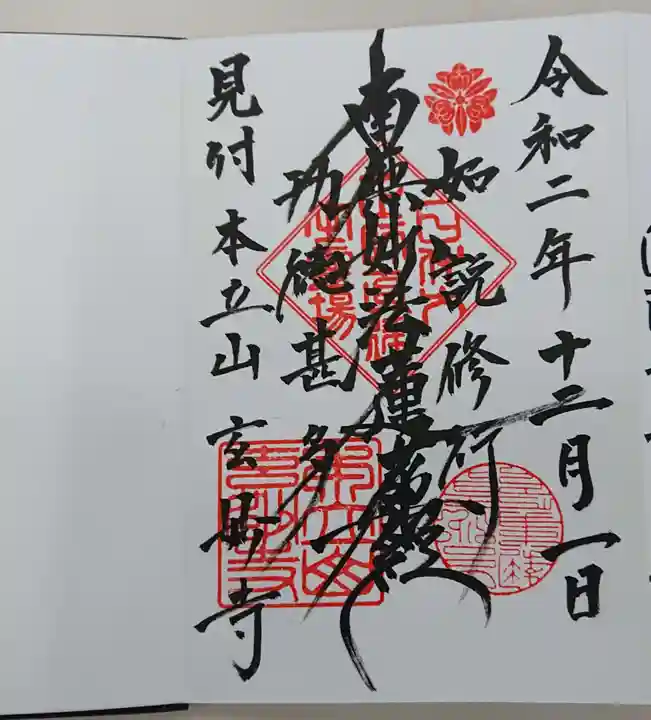 令和二年十二月一日
如説修行
南無妙法蓮華経
功徳甚多
見付 本立山 玄妙寺